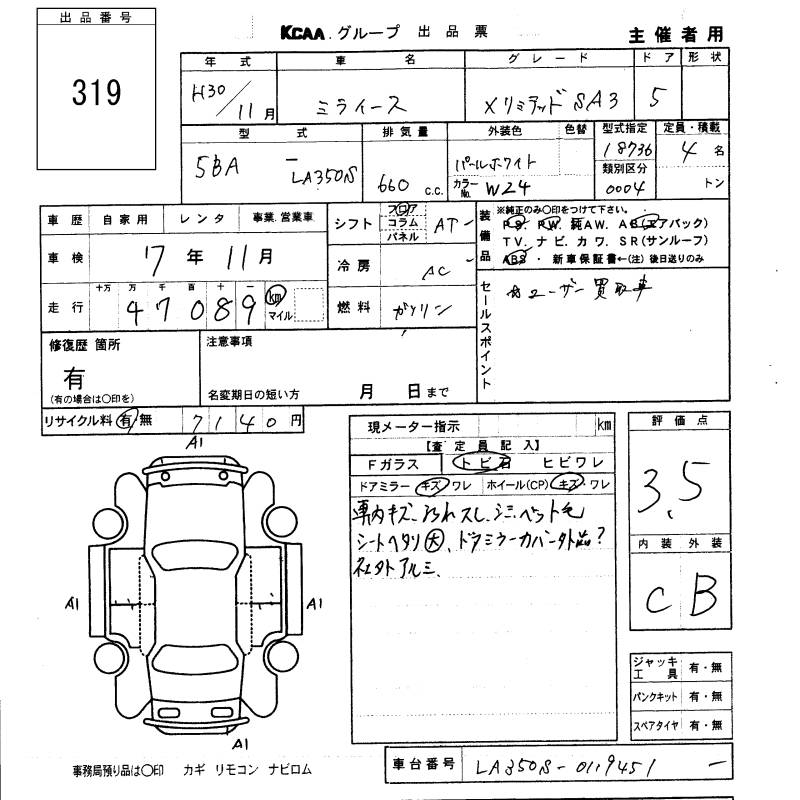 出品番号
319
KCAA グループ 出品票
主催者用
年式 車名 グレード ドア 形状
H30/11月 ミライース Xリミテッド SA3 5
型式 排気量 外装色 色替 型式指定 定員・積載
5BA - LA350S 660 c.c. パールホワイト 18736 4名
カラーNo. W24 類別区分 0004 トン
車歴 自家用 レンタ 事業.営業車
車検 7年11月
走行 十万 万 千 百 十 一
47089 km マイル
シフト フロア コラム パネル AT-
冷房 AC
燃料 ガソリン
装備品 ※純正のみ○印をつけて下さい。
PS. PW. 純AW. AB(エアバック)
TV. ナビ. カワ. SR(サンルーフ)
ABS ・ 新車保証書←(注) 後日送りのみ
セールスポイント
☆ユーザー買取車
修復歴 箇所
有
(有の場合は○印を)
注意事項
名変期日の短い方 月 日まで
リサイクル料 有 無 7140円
現メーター指示 km
【査定員記入】
Fガラス トビ石 ヒビワレ
ドアミラー キズ・ワレ ホイール(CP) キズ・ワレ
車内キズ、汚れスレ、シミ、ペット毛
シートヘタリ大、ドアミラーカバー外品?
社外アルミ
評価点
3.5
内装 外装
C B
A1
A1
A1
A1
ジャッキ工具 有・無
パンクキット 有・無
スペアタイヤ 有・無
事務局預り品は○印 カギ リモコン ナビロム
車台番号 LA350S-0119451 -